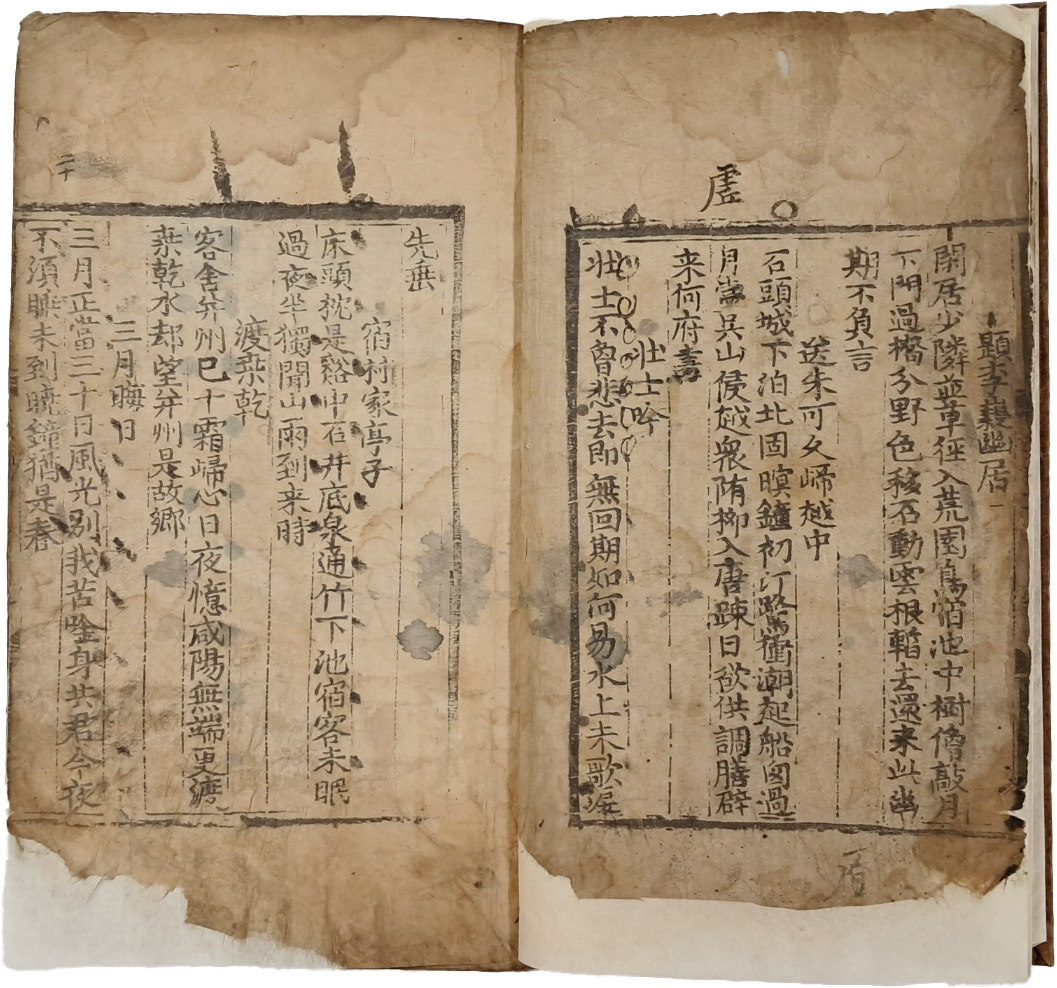 題李疑幽居
閑居少隣並草徑入荒園鳥宿池中樹僧敲月
下門過橋分野色移石動雲根暫去還来此幽
期不負言
送朱可久歸越中
石頭城下泊北固暝鐘初汀鷺衝潮起船囱過
月虛吳山侵越衆隋栁入唐踈日欲供調膳辟
来何府書
虛
壮士吟
壮士不曾悲悲去即無回期如何易水上未歌
先垂
宿村家亭子
床頭枕是谿中石井底泉通竹下池宿客未眠
過夜半獨聞山雨到来時
渡桒乾
客舍并州已十霜歸心日夜憶咸陽無端更渡
桒乾水却望并州是故郷
三月晦日
三月正當三十日風光別我苦吟身共君今夜
不須睡未到曉鐘猶是春